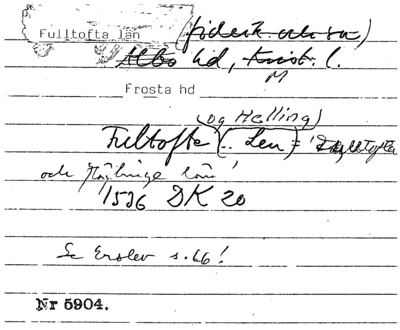 Fulltofta län
Albo hd, Krist. l.
M
Frosta hd
(og Helling)
Fultofte (.. Len) = 'Fulltofta
och Hällinge län'
1536 DK 20
Se Erslev s. 66!
Nr 5904.